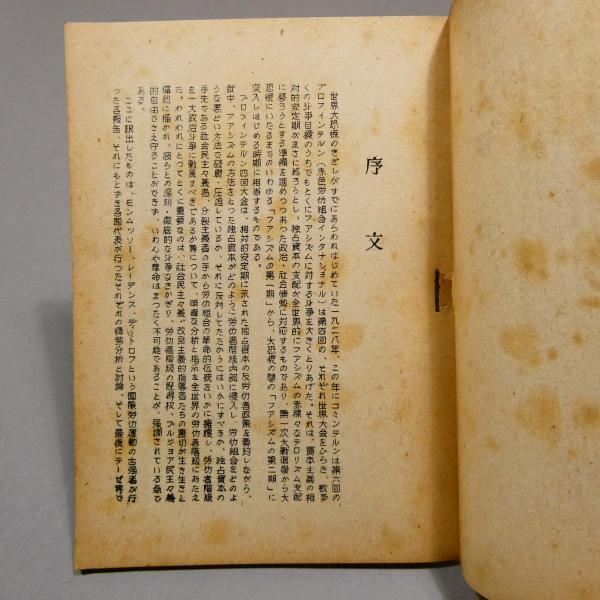 序文
世界大恐慌のきざしがすでにあらわれはじめていた一九二八年、この年にコミンテルンは第六回の、
プロフィンテルン（赤色労仂組合インタナショナル）は第四回の、それぞれ世界大会をひらき、数多
くの斗争目標のうちでもとくにファシズムに対する斗争を大きくとりあげた。それは、資本主義の相
対的安定期がまさに移ろうとし、独占資本の支配が全世界的にファシズムの赤裸々なテロリズム支配
に移ろうとする準備を進めつつあった政治・社会情勢に対応するものであり、第一次大戦直後から大
恐慌にいたるまでのいわゆる「ファシズムの第一期」から、大恐慌の間の「ファシズムの第二期」に
突入しはじめる時期に相当するものである。
プロフィンテルン四回大会は、相対的安定期に示された独占資本の反労仂者政策を要約しながら、
就中、ファシズムの方法をとった独占資本がどのように労仂者階級内部に侵入し、労仂組合をどのよ
うな悪どい方法で破壊・圧迫しているか、それに反対してたたかうにはいかにすべきか、独占資本の
手先である社会民主々義者、分裂主義者の手から労仂組合の革命的伝統をいかに擁護し、労仂者階級
を一大政治斗争に動員すべきであるか等について、明確な分析と指示を全世界の労仂者階級にあたえ
た。われわれにとってとくに重要なのは、社会民主々義、改良主義的指導者たちの裏切が生き生きと
痛烈に描かれ、彼らとの深刻・徹底的な斗争なきかぎり、労仂者階級の既得権、ブルジョア民主々義
的自由さえ守ることができず、いわんや革命はまったく不可能であることが、強調されている点で
ある。
ここに訳出したものは、モンムッソー、レーデンス、ディミトロフという国際労仂運動の古強者が行
った各報告、それにもとずき各国代表が行ったそれぞれの情勢分析と討論、そして最後にテーゼ等で